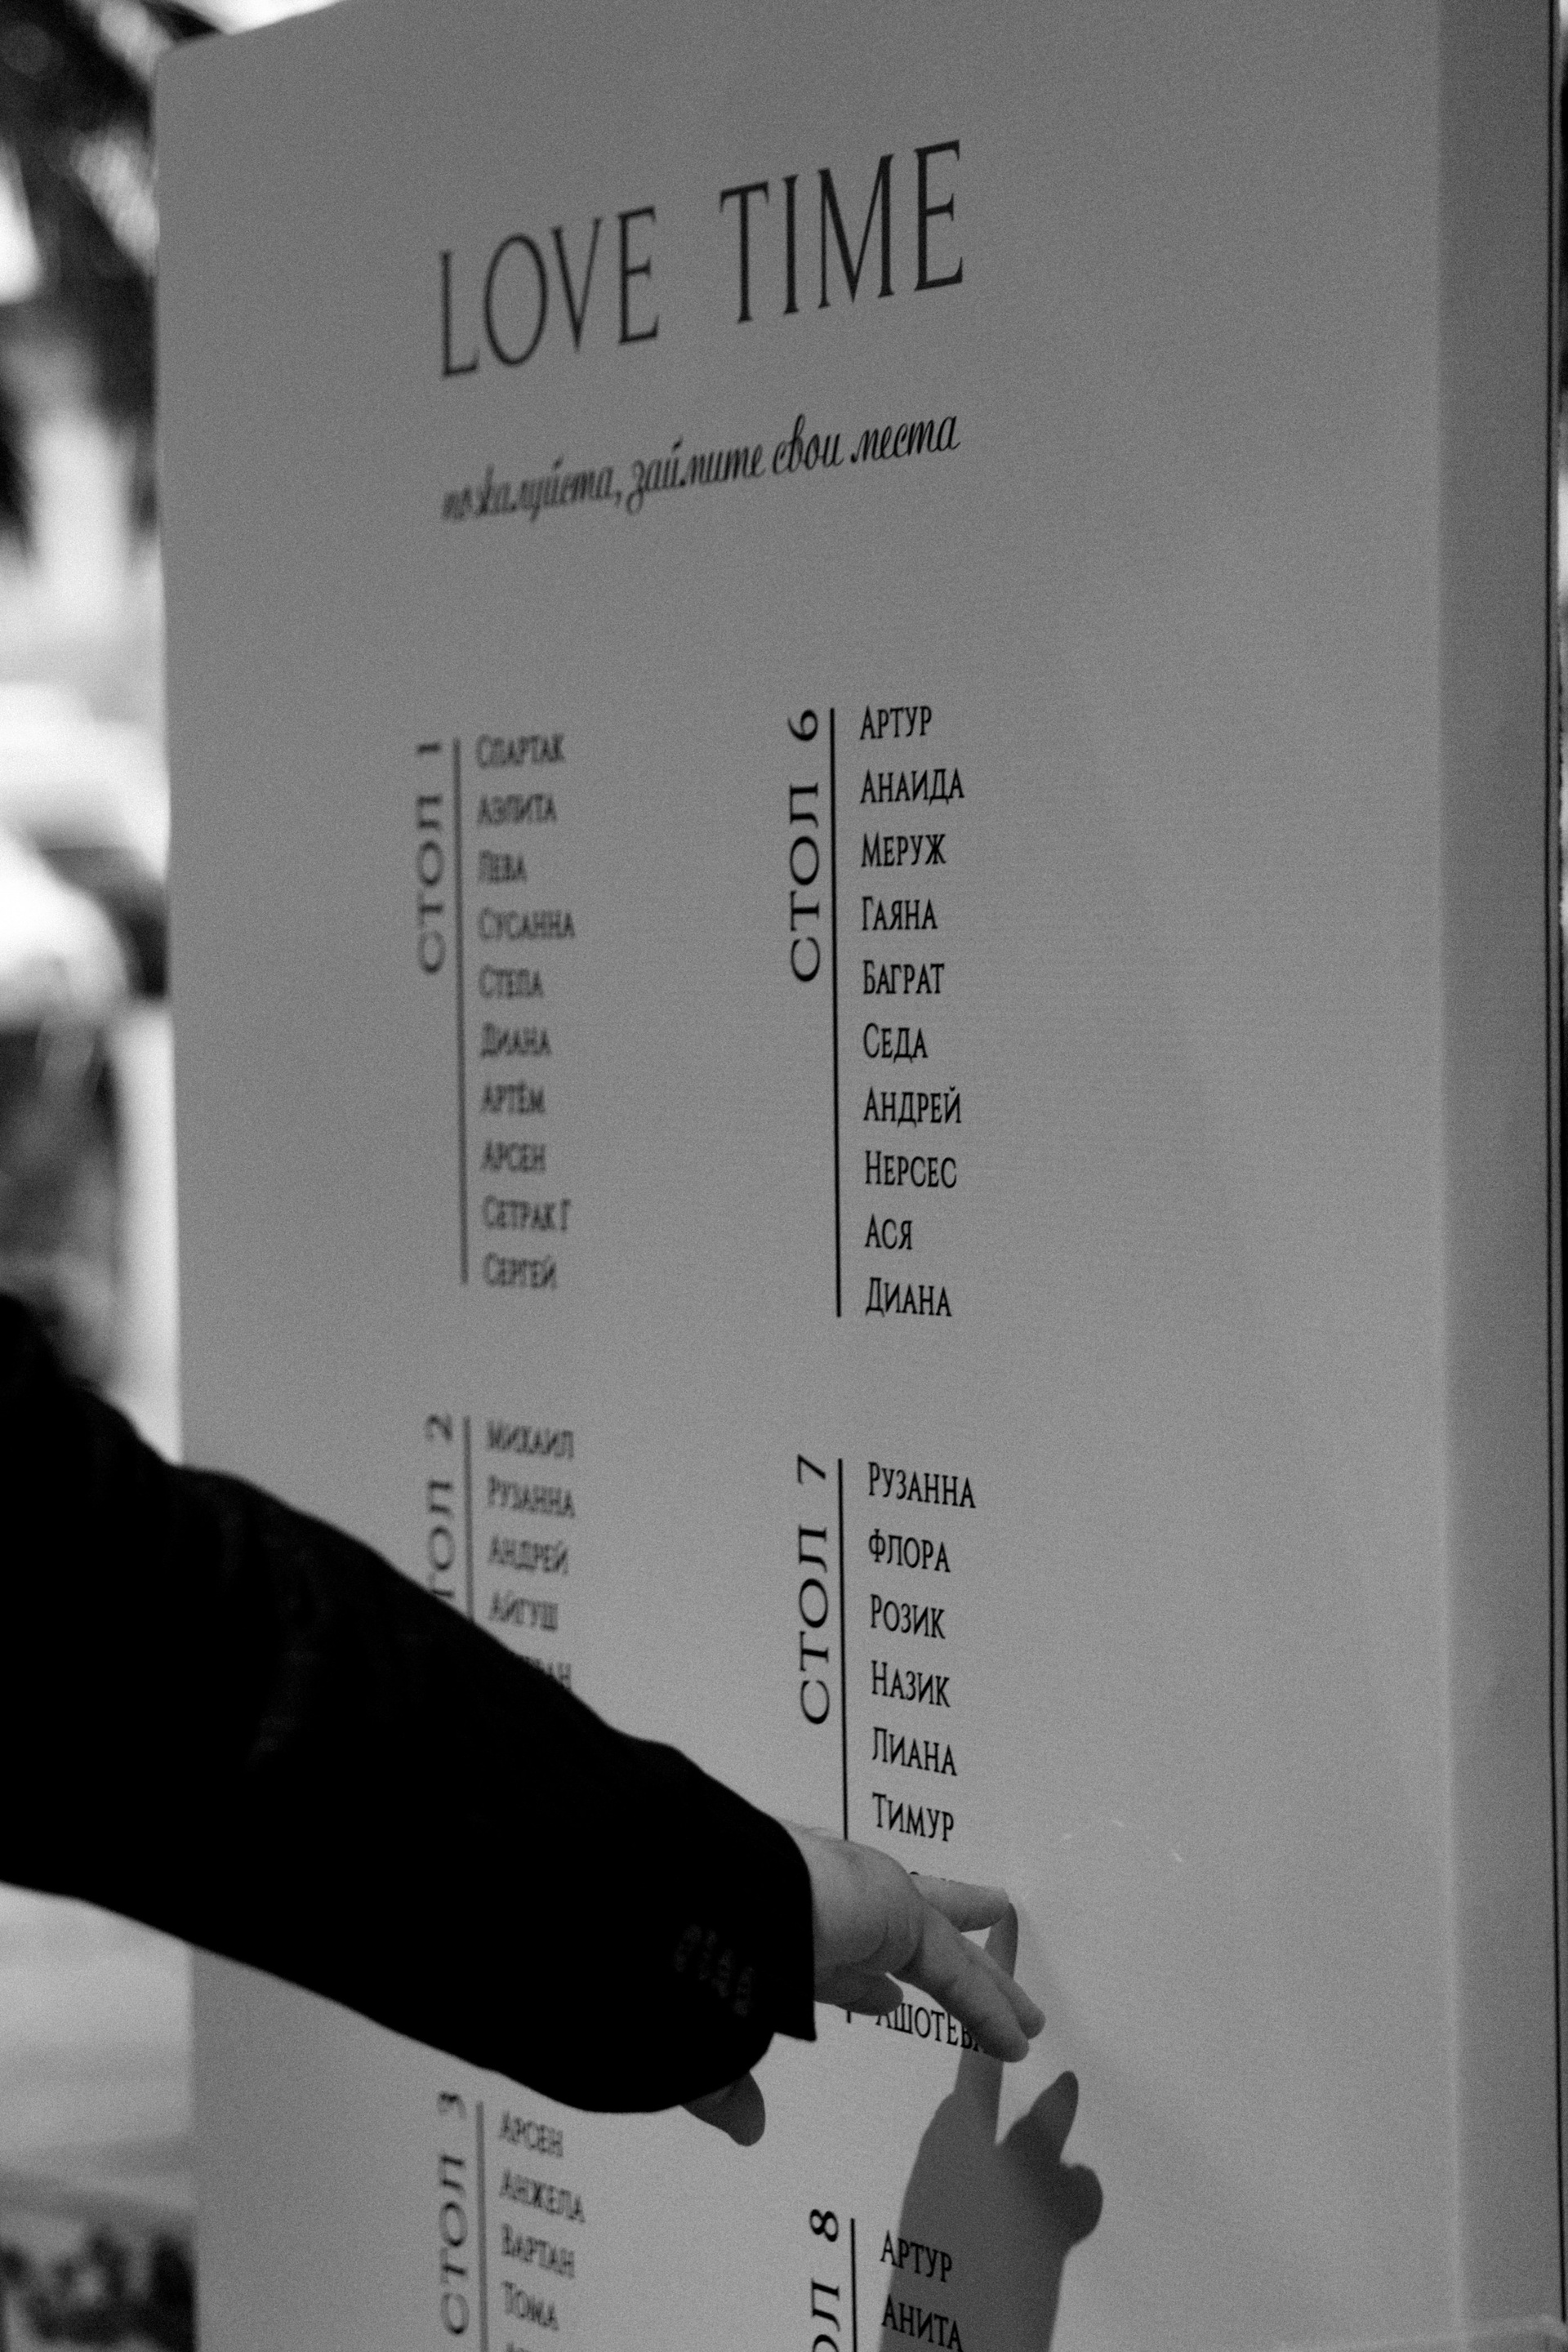 LOVE TIME
пожалуйста, займите свои места
СТОЛ 1
СПАРТАК
АЭЛИТА
ЛЕВА
СУСАННА
СТЕПА
ДИАНА
АРТЁМ
АРСЕН
СЕТРАК Г
СЕРГЕЙ
2
МИХАИЛ
РУЗАННА
АНДРЕЙ
АЙГУШ
СТОЛ 3
АРСЕН
АНЖЕЛА
ВАРТАН
ТОМА
СТОЛ 6
АРТУР
АНАИДА
МЕРУЖ
ГАЯНА
БАГРАТ
СЕДА
АНДРЕЙ
НЕРСЕС
АСЯ
ДИАНА
СТОЛ 7
РУЗАННА
ФЛОРА
РОЗИК
НАЗИК
ЛИАНА
ТИМУР
8
АРТУР
АНИТА